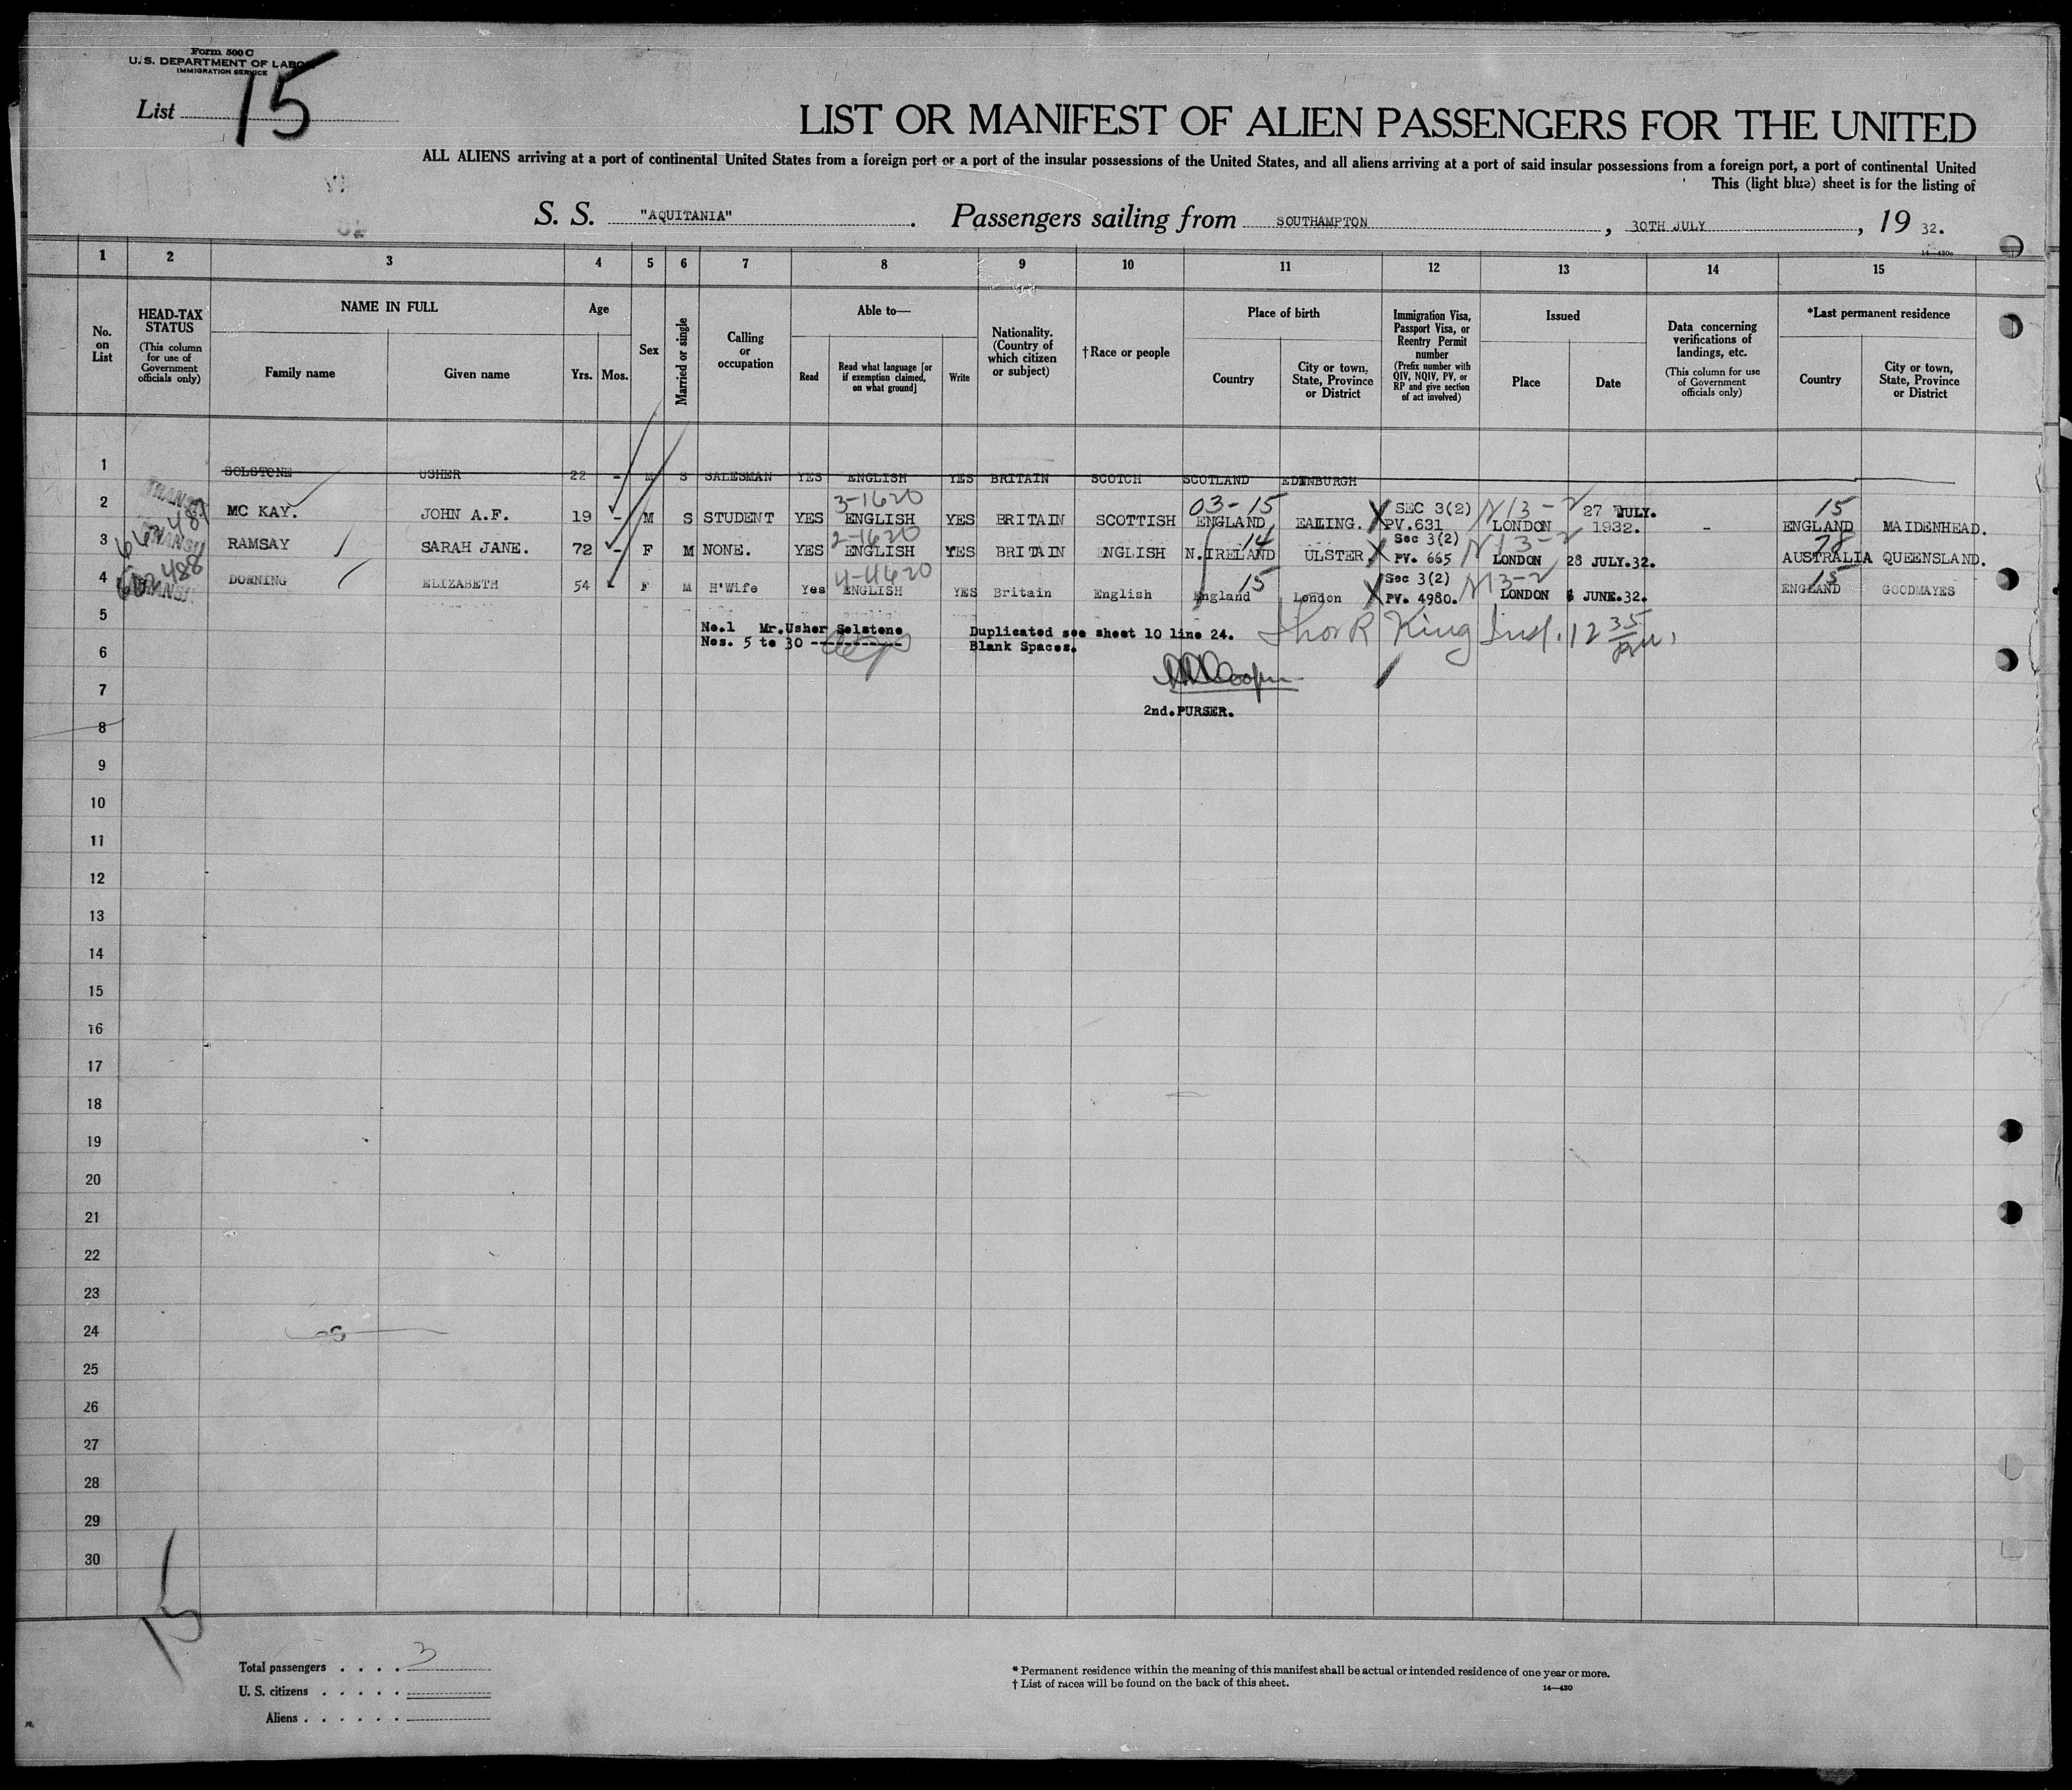 Form 500 C
U. S. DEPARTMENT OF LABOR
IMMIGRATION SERVICE
List 15
LIST OR MANIFEST OF ALIEN PASSENGERS FOR THE UNITED
ALL ALIENS arriving at a port of continental United States from a foreign port or a port of the insular possessions of the United States, and all aliens arriving at a port of said insular possessions from a foreign port, a port of continental United
This (light blue) sheet is for the listing of
S. S. "AQUITANIA". Passengers sailing from SOUTHAMPTON, 30TH JULY, 19 32.
1 2 3 4 5 6 7 8 9 10 11 12 13 14 15
No. on List
HEAD-TAX STATUS
(This column for use of Government officials only)
NAME IN FULL
Family name
Given name
Age
Yrs. Mos.
Sex
Married or single
Calling or occupation
Able to—
Read
Read what language [or if exemption claimed, on what ground]
Write
Nationality. (Country of which citizen or subject)
†Race or people
Place of birth
Country
City or town, State, Province or District
Immigration Visa, Passport Visa, or Reentry Permit number
(Prefix number with QIV, NQIV, PV, or RP and give section of act involved)
Issued
Place
Date
Data concerning verifications of landings, etc.
(This column for use of Government officials only)
*Last permanent residence
Country
City or town, State, Province or District
1 SOLSTONE USHER 22 - M S SALESMAN YES ENGLISH YES BRITAIN SCOTCH SCOTLAND EDINBURGH
3-1620 03-15 SEC 3(2) 27 JULY. 15
2 MC KAY. JOHN A.F. 19 - M S STUDENT YES ENGLISH YES BRITAIN SCOTTISH ENGLAND EALING. PV.631 LONDON 1932. - ENGLAND MAIDENHEAD.
2-1620 14 Sec 3(2) 28
3 RAMSAY SARAH JANE. 72 - F M NONE. YES ENGLISH YES BRITAIN ENGLISH N.IRELAND ULSTER PV. 665 LONDON 28 JULY.32. AUSTRALIA QUEENSLAND.
15 Sec 3(2) 15
4 DOWNING ELIZABETH 54 - F M H'Wife Yes ENGLISH YES Britain English England London PV. 4980. LONDON 6 JUNE.32. ENGLAND GOODMAYES
5 No.1 Mr.Usher Solstone Duplicated see sheet 10 line 24.
Nos. 5 to 30 ---------- Blank Spaces.
King Insp. 12 35
6
7
2nd.PURSER.
8
9
10
11
12
13
14
15
16
17
18
19
20
21
22
23
24
25
26
27
28
29
30
15
Total passengers . . . . 3
U. S. citizens . . . . .
Aliens . . . . . .
* Permanent residence within the meaning of this manifest shall be actual or intended residence of one year or more.
† List of races will be found on the back of this sheet.
14—430